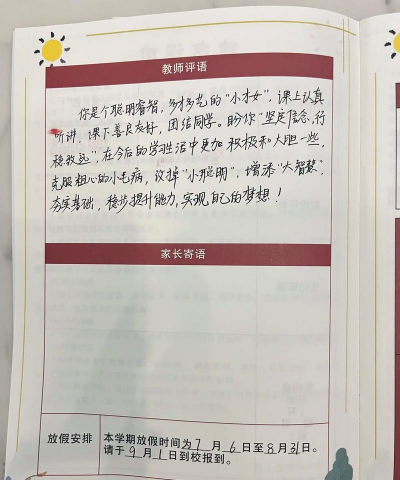 教师评语
你是个聪明睿智，多才多艺的“小才女”，课上认真
听讲，课下善良友好，团结同学。助你“坚定信念，行
稳致远”，在今后的学习生活中更加积极和大胆一些，
克服粗心的小毛病，改掉“小聪明”，增添“大智慧”，
夯实基础，稳步提升能力，实现自己的梦想！
家长寄语
放假安排
本学期放假时间为7月6日至8月31日。
请于9月1日到校报到。